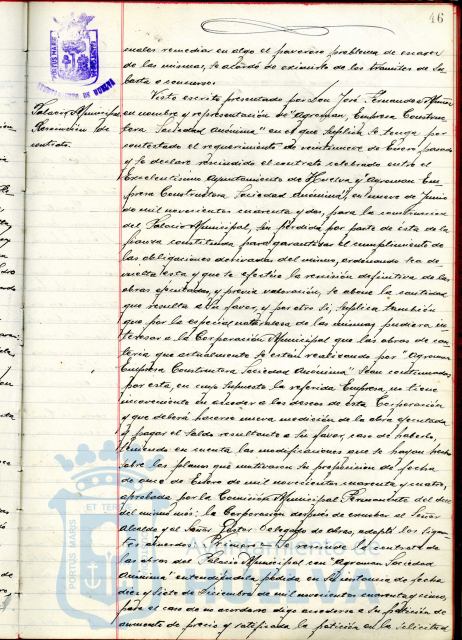 46
males remediar en algo el pavoroso problema de escasez
de las mismas, se acordó de eximirlo de los trámites de su-
basta o concurso.
Palacio Municipal
Rescisión de
contrato.
Visto escrito presentado por Don José Fernández Muñoz
en nombre y representación de "Agroman, Empresa Construc-
tora Sociedad Anónima" en el que suplica se tenga por
contestado el requerimiento de veintinueve de Enero pasado
y se declare rescindido el contrato celebrado entre el
Excelentísimo Ayuntamiento de Huelva y Agroman Em-
presa Constructora Sociedad Anónima", en nueve de Junio
de mil novecientos cuarenta y dos, para la construcción
del Palacio Municipal, sin pérdida por parte de ésta de la
fianza constituida para garantizar el cumplimiento de
las obligaciones derivadas del mismo, ordenando sea de-
vuelta ésta y que se efectúe la recisión definitiva de las
obras ejecutadas, y previa valoración, se abone la cantidad
que resulte a su favor, y por otro sí, suplica también
que por la especial naturaleza de las mismas pudiera in-
teresar a la Corporación Municipal que las obras de can-
tería que actualmente se están realizando por "Agroman
Empresa Constructora Sociedad Anónima" sean continuadas
por ésta, en cuyo supuesto la referida Empresa, no tiene
inconveniente en acceder a los deseos de esta Corporación
y que deberá hacerse nueva medición de la obra ejecutada
y pagar el saldo resultante a su favor, caso de haberlo,
teniendo en cuenta las modificaciones que se hayan hecho
sobre los planos que motivaron su proposición de fecha
de once de Enero de mil novecientos cuarenta y cuatro,
aprobada por la Comisión Municipal Permanente del doce
del mismo mes; la Corporación después de escuchar al Señor
Alcalde y al Señor Gestor Delegado de obras, adoptó los siguien-
tes acuerdos: Primero: la del contrato de
las obras del Palacio Municipal con "Agroman Sociedad
Anónima" entendiéndola pedida en su instancia de fecha
diez y siete de Diciembre de mil novecientos cuarenta y cinco,
para el caso de no acordarse digo accederse a su petición de
aumento de precio y ratificada la petición en la solicitud
PORTUS MARIS ET TERRAE CUSTODIA
AYUNTAMIENTO DE HUELVA
Ayuntamiento de
HUELVA